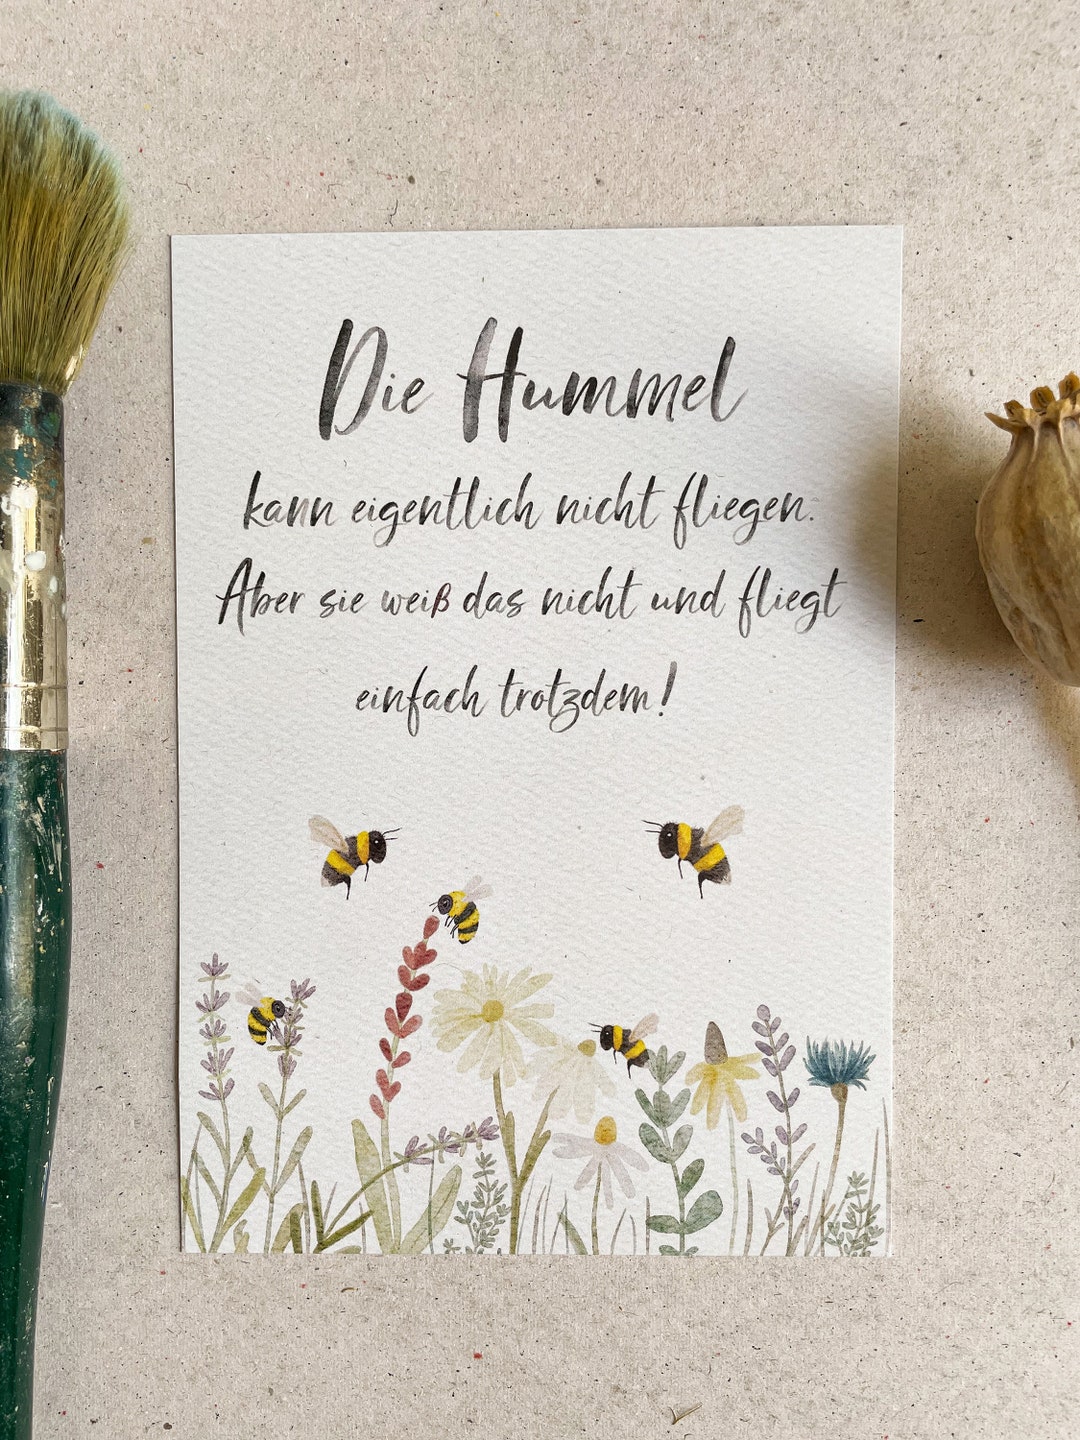 Die Hummel
kann eigentlich nicht fliegen.
Aber sie weiß das nicht und fliegt
einfach trotzdem!